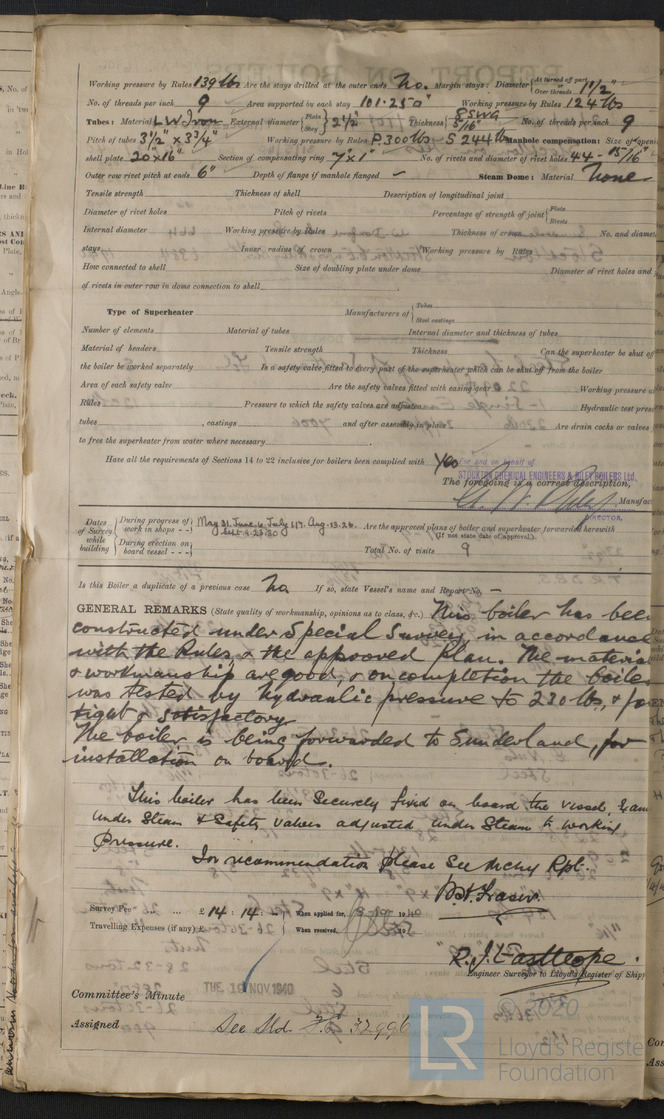 Working pressure by Rules 139 lbs Are the stays drilled at the outer ends No. Margin stays: Diameter { At turned off part, Over threads 1 1/2"
No. of threads per inch 9 Area supported by each stay 101.25 □" Working pressure by Rules 124 lbs
Tubes: Material L W Iron External diameter { Plain Stay } 2 1/2" Thickness { 8 SWG 5/16" No. of threads per inch 9
Pitch of tubes 3 1/2" x 3 3/4" Working pressure by Rules P 300 lbs S 244 lbs Manhole compensation: Size of
shell plate 20 x 16" Section of compensating ring 7" x 1" No. of rivets and diameter of rivet holes 44 - 15/16"
Outer row rivet pitch at ends 6" Depth of flange if manhole flanged - Steam Dome: Material None
Tensile strength Thickness of shell Description of longitudinal joint
Diameter of rivet holes Pitch of rivets Percentage of strength of joint { Plate Rivets
Internal diameter Working pressure by Rules Thickness of crown No. and
stays Inner radius of crown Working pressure by Rules
How connected to shell Size of doubling plate under dome Diameter of rivet holes and
of rivets in outer row in dome connection to shell
Type of Superheater Manufacturers of { Tubes Steel castings
Number of elements Material of tubes Internal diameter and thickness of tubes
Material of headers Tensile strength Thickness Can the superheater be shut of
the boiler be worked separately Is a safety valve fitted to every part of the superheater which can be shut off from the boiler
Area of each safety valve Are the safety valves fitted with easing gear Working pressure
Rules Pressure to which the safety valves are adjusted Hydraulic test
tubes , castings and after assembly in place Are drain cocks or valves
to free the superheater from water where necessary
Have all the requirements of Sections 14 to 22 inclusive for boilers been complied with Yes
For and on behalf of
STOCKTON CHEMICAL ENGINEERS & RILEY BOILERS Ltd.
The foregoing is a correct description,
DIRECTOR.
Dates of Survey while building { During progress of work in shops - - } May 31. June 6. July 1.17. Aug. 13.26. Sept. 4.23.30 Are the approved plans of boiler and superheater forwarded herewith (If not state date of approval.)
During erection on board vessel - - - Total No. of visits 9
Is this Boiler a duplicate of a previous case No If so, state Vessel's name and Report No. -
GENERAL REMARKS (State quality of workmanship, opinions as to class, &c.) This boiler has been
constructed under Special Survey in accordance
with the Rules, & the approved plan. The
& workmanship are good, & on completion the boiler
was tested by hydraulic pressure to 230 lbs, &
tight & satisfactory
The boiler is being forwarded to Sunderland, for
installation on board.
This boiler has been securely fixed on board the vessel,
under steam & safety valves adjusted under steam to working
pressure.
For recommendation please see Mchy Rpt.
Survey Fee ... ... £ 14 : 14 : - When applied for,
Travelling Expenses (if any) £ When received,
R. J. Easthope.
Engineer Surveyor to Lloyd's Register of
Committee's Minute TUE 19 NOV 1940
Assigned See Sld. 32996
© 2020
LR
Lloyd's Registe
Foundation